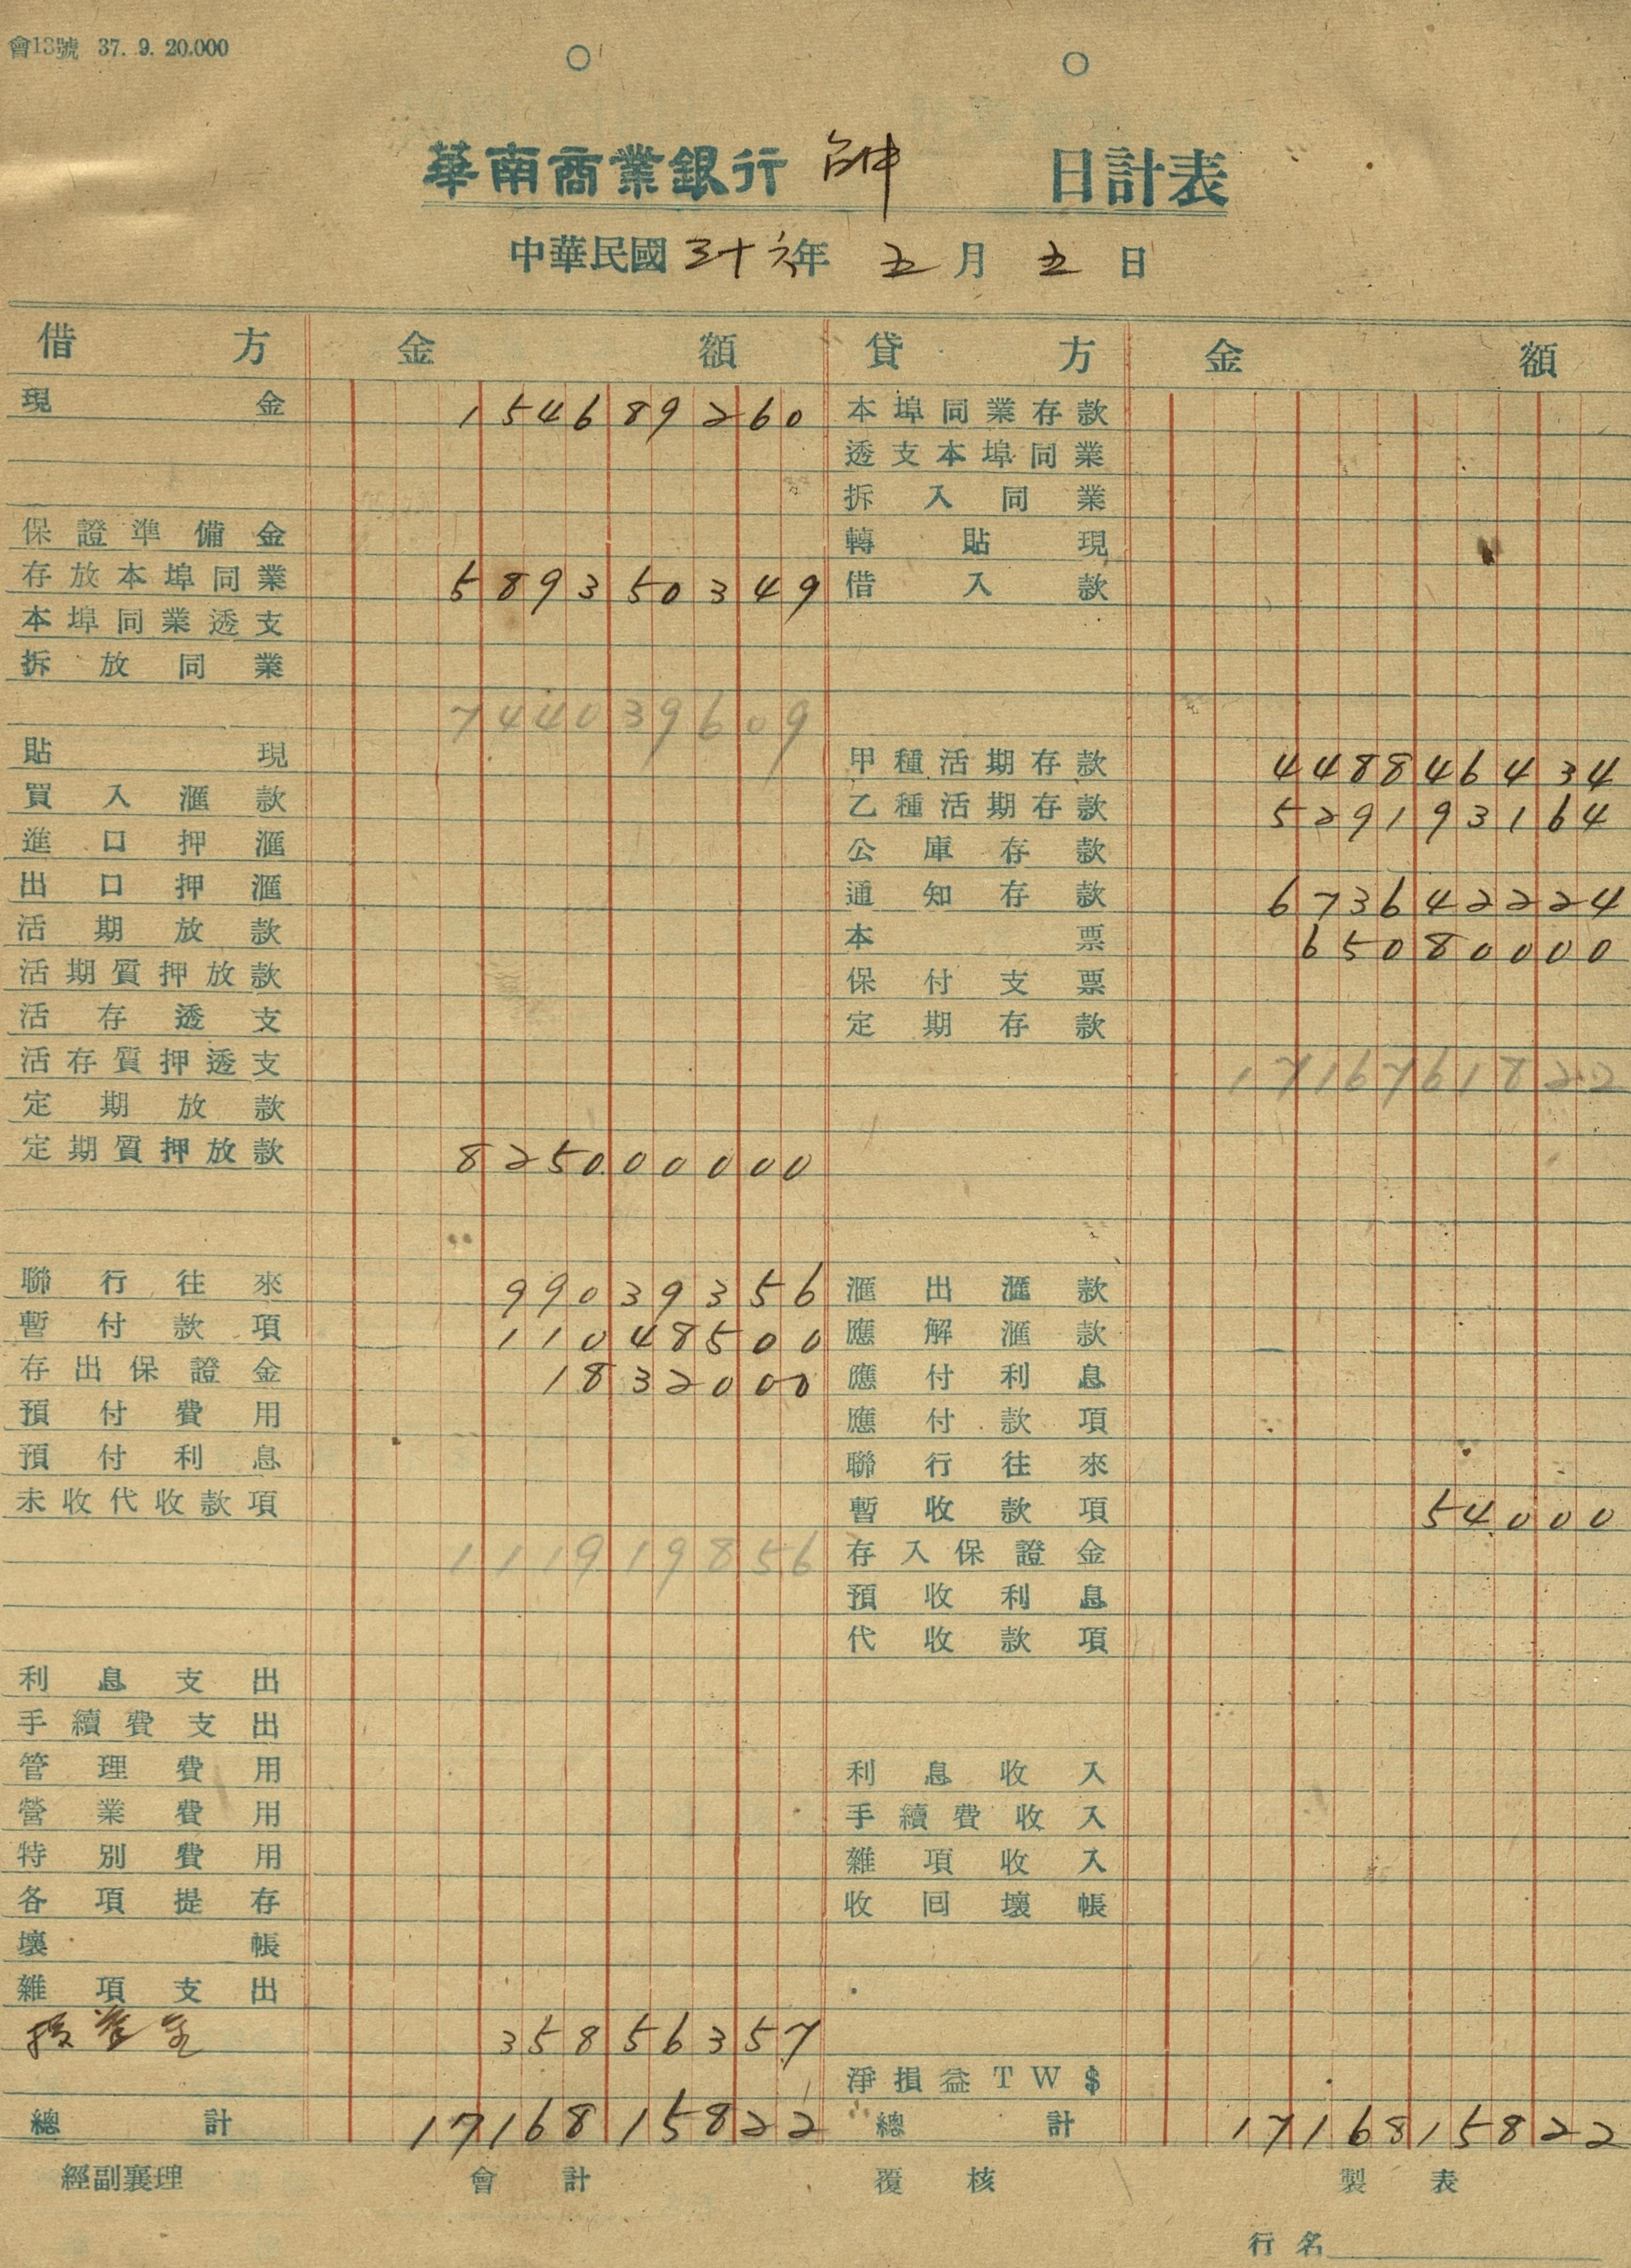 會13號 37. 9. 20.000
華南商業銀行 日計表
中華民國三十六年 五月五日
借方 金額 貸方 金額
現金 154689260 本埠同業存款
透支本埠同業
拆入同業
保證準備金 轉貼現
存放本埠同業 589350349 借入款
本埠同業透支
拆放同業
744039609
貼現 甲種活期存款 448846434
買入滙款 乙種活期存款 529193164
進口押滙 公庫存款
出口押滙 通知存款 673642224
活期放款 本票 65080000
活期質押放款 保付支票
活存透支 定期存款
活存質押透支 1716761822
定期放款
定期質押放款 825000000
聯行往來 99039356 滙出滙款
暫付款項 11048500 應解滙款
存出保證金 1832000 應付利息
預付費用 應付款項
預付利息 聯行往來
未收代收款項 暫收款項 54000
111919856 存入保證金
預收利息
代收款項
利息支出
手續費支出
管理費用 利息收入
營業費用 手續費收入
特別費用 雜項收入
各項提存 收回壞帳
壞帳
雜項支出
35856357
淨損益TW$
總計 1716815822 總計 1716815822
經副襄理 會計 覆核 製表
行名